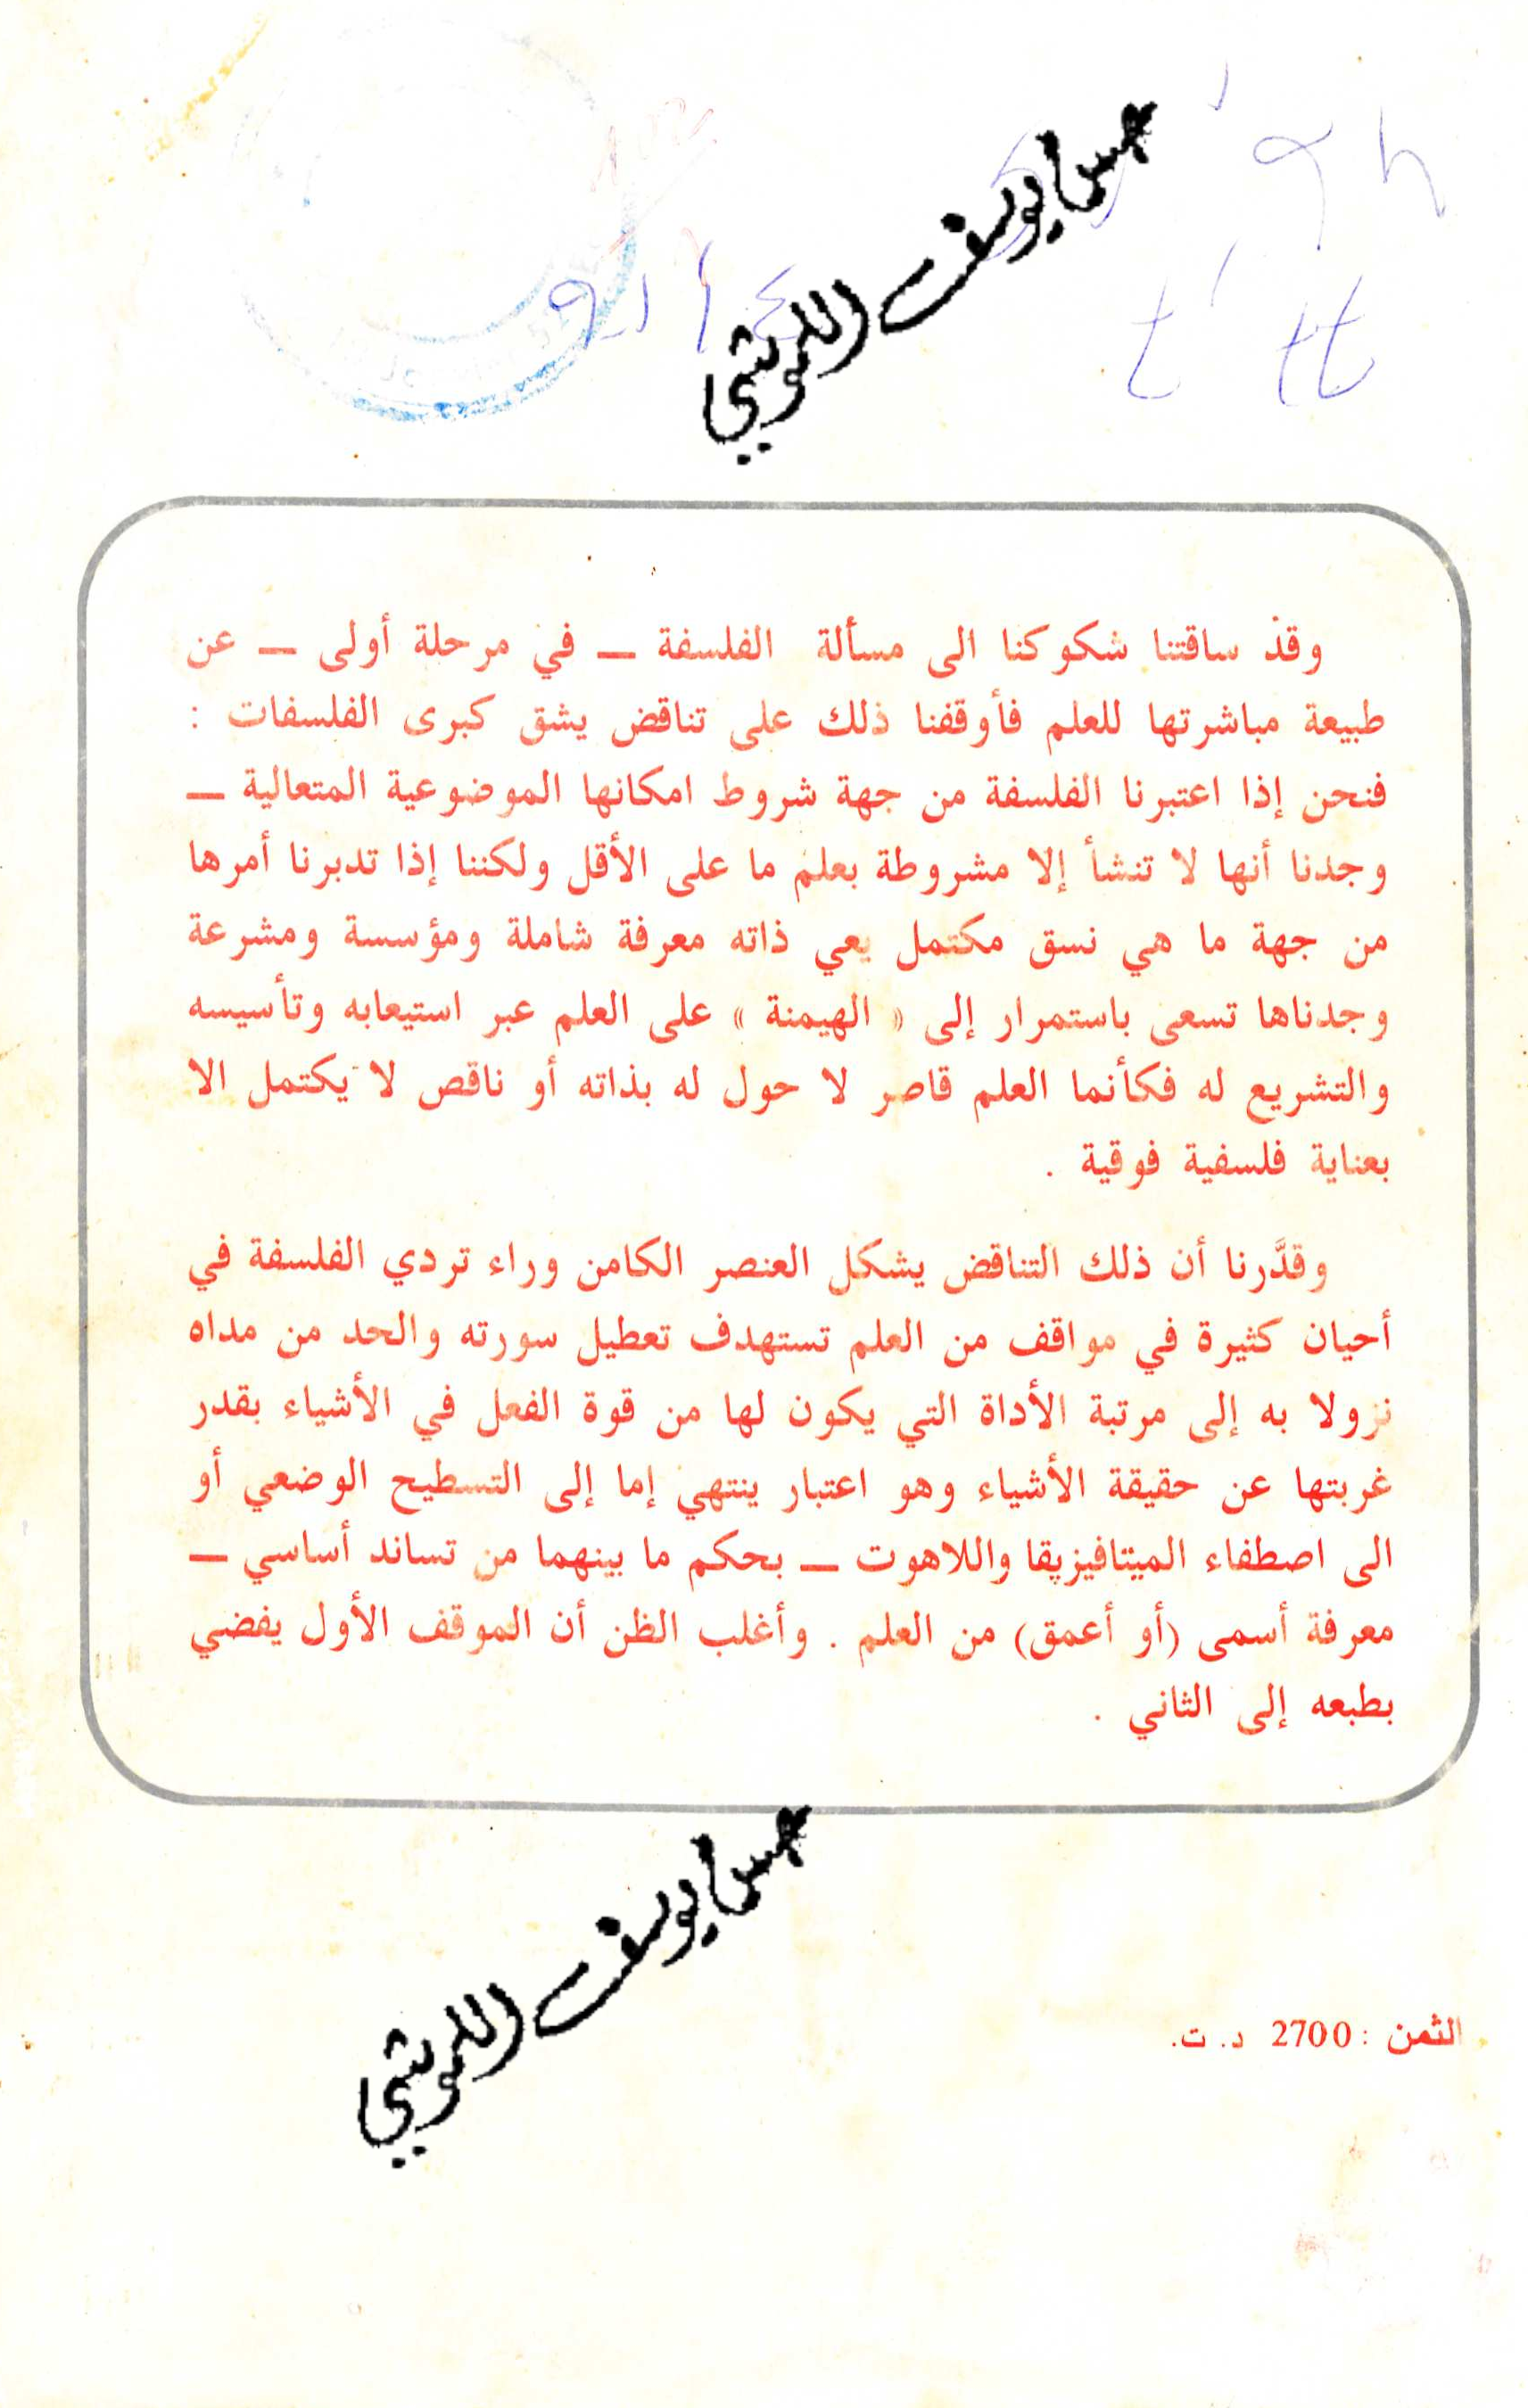 وقد ساقتنا شكوكنا الى مسألة الفلسفة — في مرحلة أولى — عن
طبيعة مباشرتها للعلم فأوقفنا ذلك على تناقض يشق كبرى الفلسفات :
فنحن إذا اعتبرنا الفلسفة من جهة شروط امكانها الموضوعية المتعالية —
وجدنا أنها لا تنشأ إلا مشروطة بعلم ما على الأقل ولكننا إذا تدبرنا أمرها
من جهة ما هي نسق مكتمل يعي ذاته معرفة شاملة ومؤسسة ومشرعة
وجدناها تسعى باستمرار إلى « الهيمنة » على العلم عبر استيعابه وتأسيسه
والتشريع له فكأنما العلم قاصر لا حول له بذاته أو ناقص لا يكتمل الا
بعناية فلسفية فوقية .
وقدَّرنا أن ذلك التناقض يشكل العنصر الكامن وراء تردي الفلسفة في
أحيان كثيرة في مواقف من العلم تستهدف تعطيل سورته والحد من مداه
نزولا به إلى مرتبة الأداة التي يكون لها من قوة الفعل في الأشياء بقدر
غربتها عن حقيقة الأشياء وهو اعتبار ينتهي إما إلى التسطيح الوضعي أو
الى اصطفاء الميتافيزيقا واللاهوت — بحكم ما بينهما من تساند أساسي —
معرفة أسمى (أو أعمق) من العلم . وأغلب الظن أن الموقف الأول يفضي
بطبعه إلى الثاني .
الثمن : 2700 د. ت.